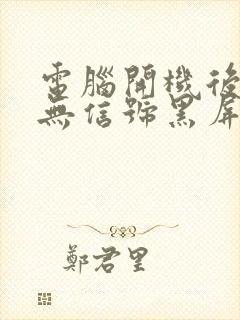 電腦開機後
無信號黑屏
鄭君里